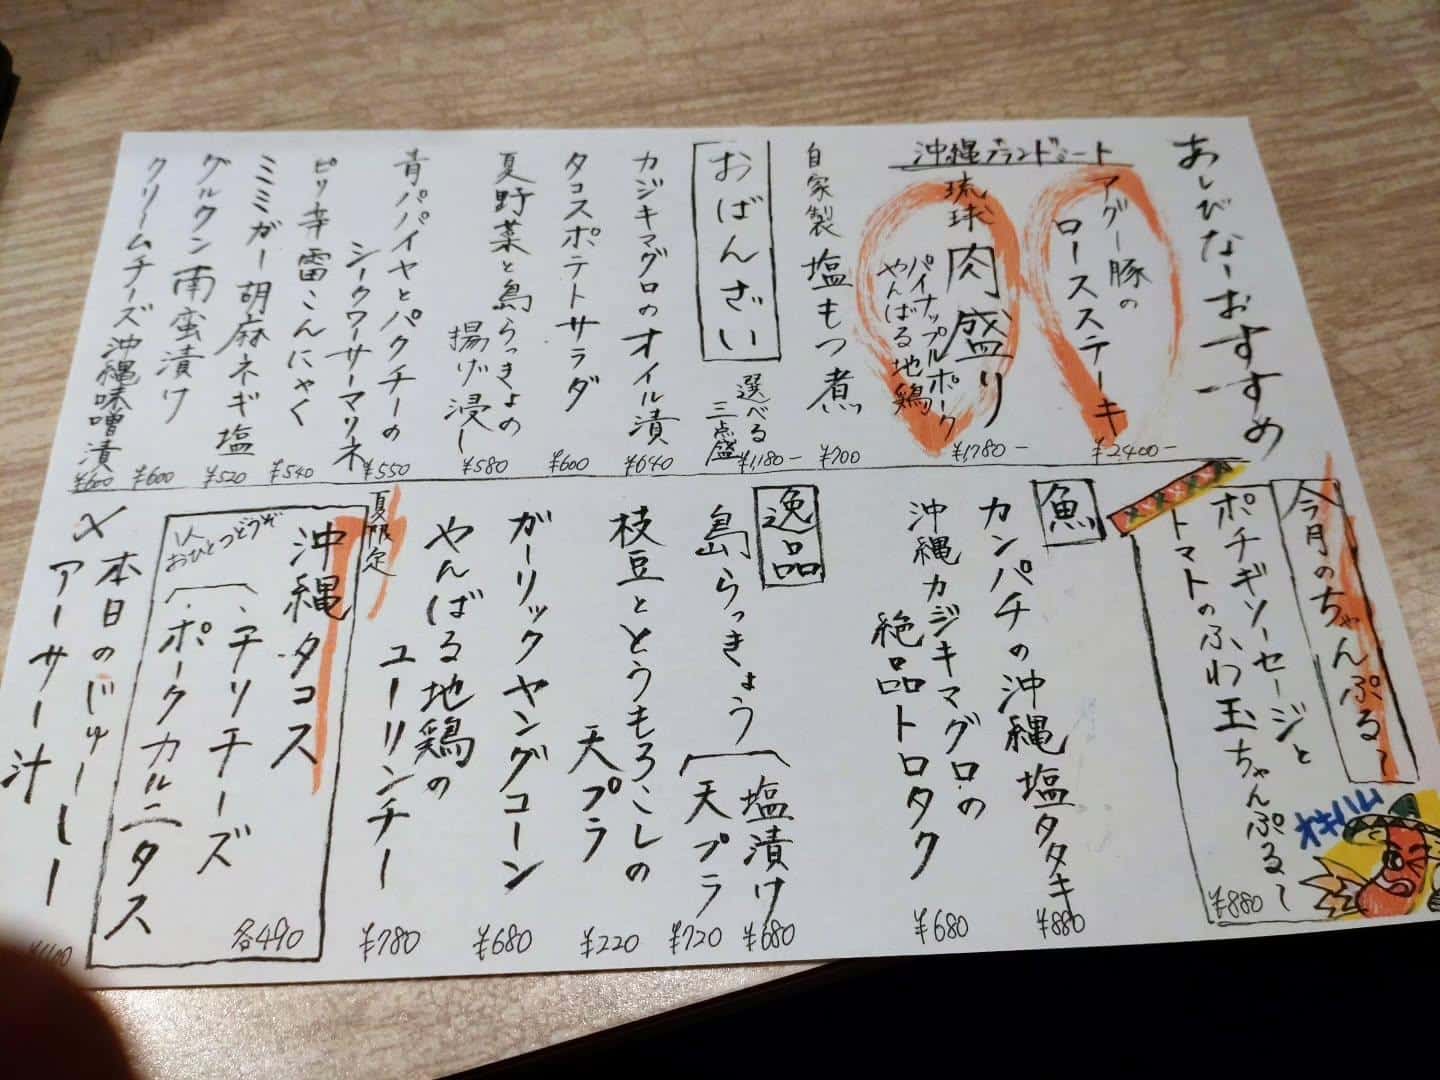 あしびなーおすすめ
沖縄ブランドミート
アグー豚の
ロースステーキ
¥2400-
琉球肉盛り
パイナップルポーク
やんばる地鶏
¥1780-
自家製塩もつ煮
¥700
おばんざい
選べる
三点盛
¥1,180-
カジキマグロのオイル漬
¥640
タコスポテトサラダ
¥600
夏野菜と島らっきょの
揚げ浸し
¥580
青パパイヤとパクチーの
シークワーサーマリネ
¥550
ピリ辛雷こんにゃく
¥540
ミミガー胡麻ネギ塩
¥520
グルクン南蛮漬け
¥600
クリームチーズ沖縄味噌漬
¥600
今月のちゃんぷる〜
ポチギソーセージと
トマトのふわ玉ちゃんぷる〜
¥880
オキハム
魚
カンパチの沖縄塩タタキ
¥880
沖縄カジキマグロの
絶品トロタク
¥680
逸品
島らっきょう
塩漬け
¥680
天プラ
¥720
枝豆ととうもろこしの
天プラ
¥220
ガーリックヤングコーン
¥680
やんばる地鶏の
ユーリンチー
¥780
夏限定
沖縄タコス
1人
おひとつどうぞ
・チリチーズ
・ポークカルニタス
各490
本日のじゅーしー
アーサー汁